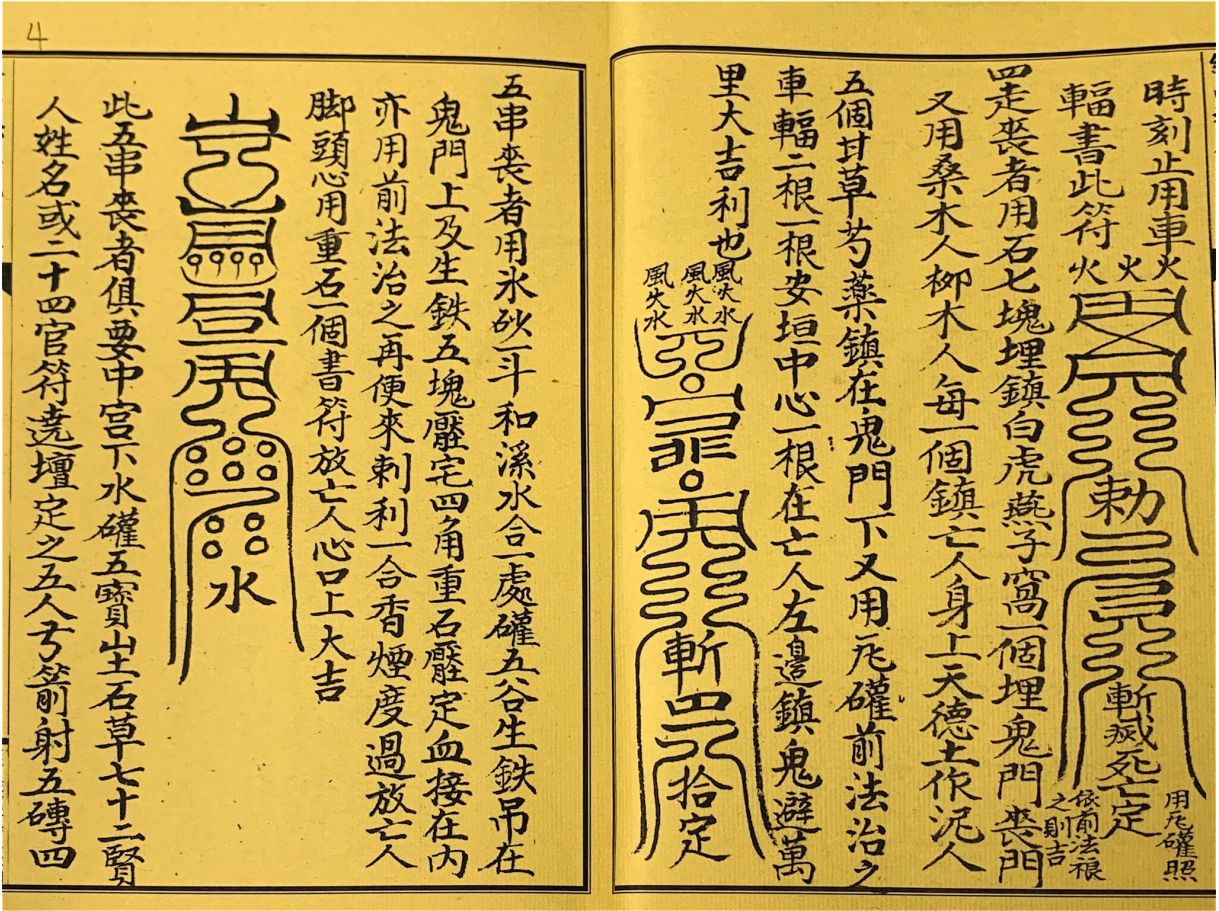 4
時刻止用車
輻書此符
火火火
勅
斬滅死亡定
用瓦礶照
依前法禳
之則吉
四走丧者用石七塊埋鎮白虎燕子窩一個埋鬼門丧門
又用桑木人柳木人每一個鎮亡人身上天德土作泥人
五個甘草芍藥鎮在鬼門下又用瓦礶前法治之
車輻二根一根安垣中心一根在亡人左邊鎮鬼避萬
里大吉利也
風火水
風火水
風火水
斬
拾定
五串丧者用氷砂一斗和溪水合一處礶五谷生鉄吊在
鬼門上及生鉄五塊壓宅四角重石壓定血接在内
亦用前法治之再便來刺利一合香煙度過放亡人
脚頭心用重石一個書符放亡人心口上大吉
水
此五串丧者俱要中宫下水礶五寶山土石草七十二賢
人姓名或二十四官符遶壇定之五人弓箭射五磚四